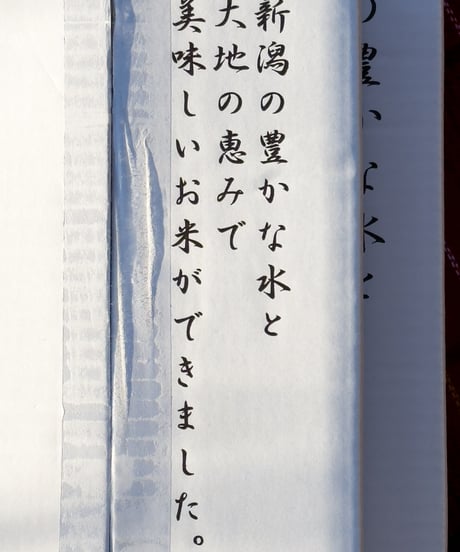 新潟の豊かな水と
大地の恵みで
美味しいお米ができました。
の豊かな水と